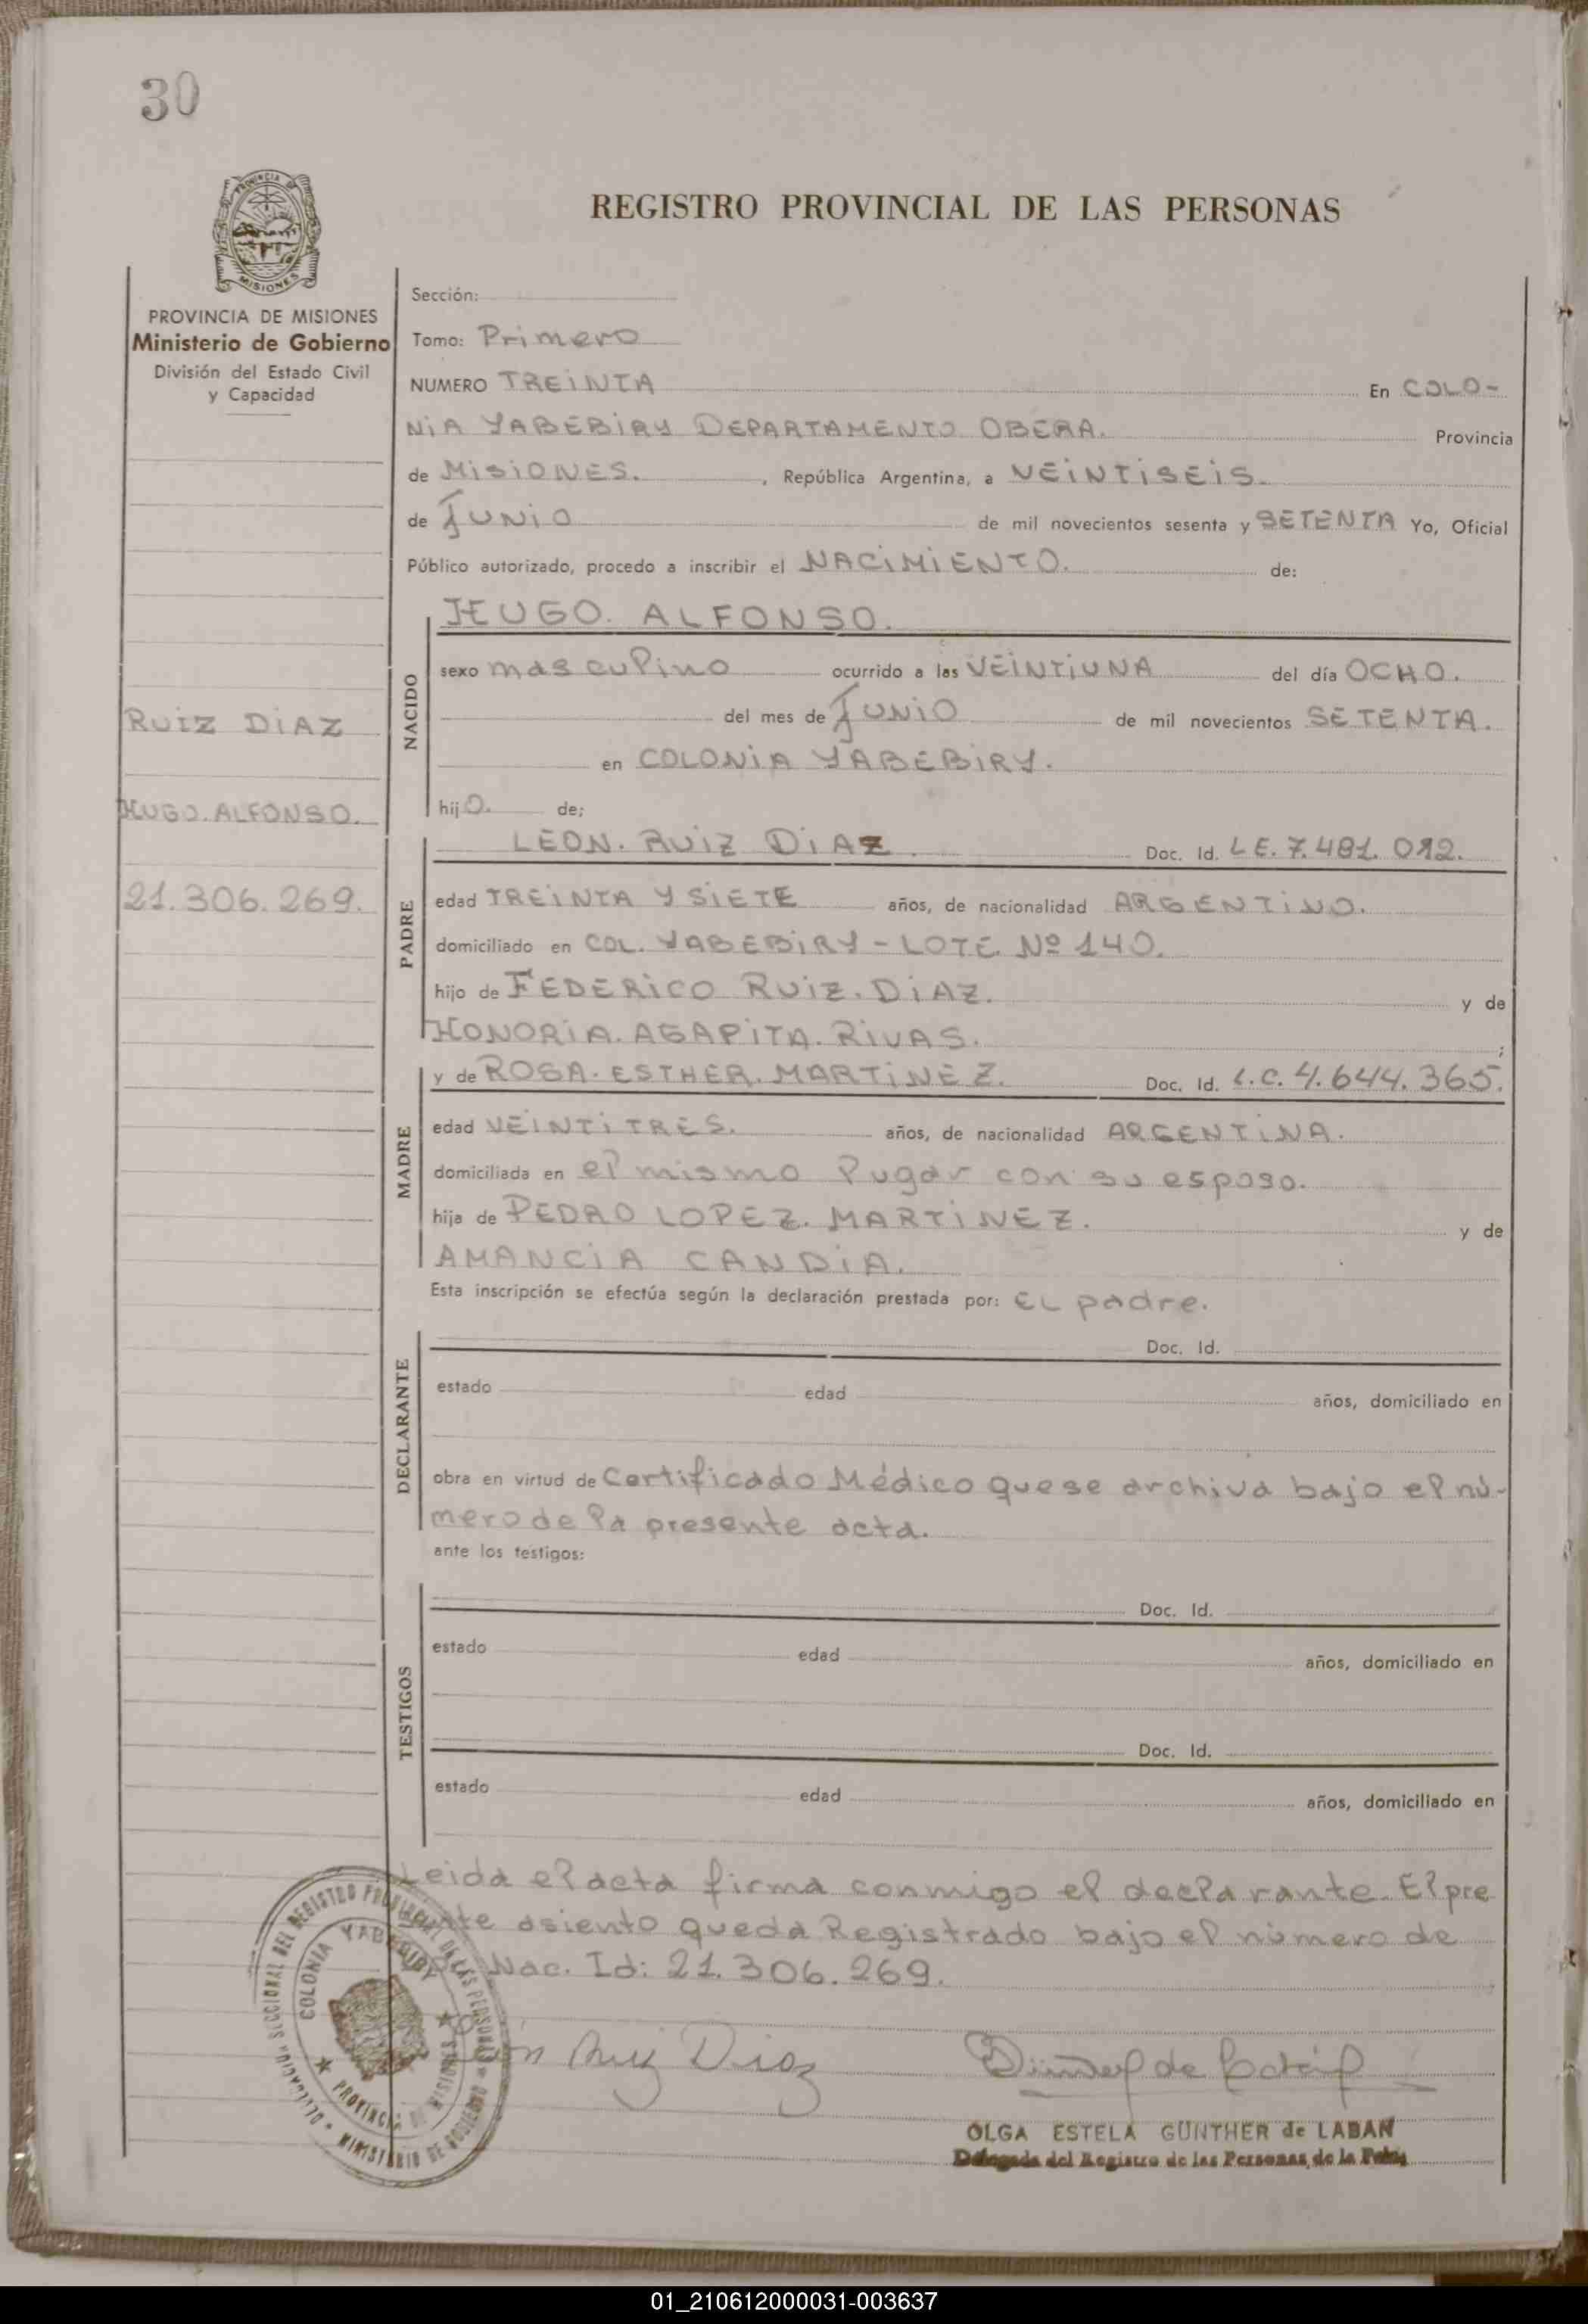 30
REGISTRO PROVINCIAL DE LAS PERSONAS
PROVINCIA DE MISIONES
Ministerio de Gobierno
División del Estado Civil
y Capacidad
RUIZ DIAZ
HUGO. ALFONSO.
21.306.269.
Sección:
Tomo: Primero
NUMERO TREINTA En COLO-
NIA YABEBIRY DEPARTAMENTO OBERA. Provincia
de MISIONES. , República Argentina, a VEINTISEIS.
de JUNIO de mil novecientos sesenta y SETENTA Yo, Oficial
Público autorizado, procedo a inscribir el NACIMIENTO. de:
NACIDO
HUGO. ALFONSO.
sexo masculino ocurrido a las VEINTIUNA del día OCHO.
del mes de JUNIO de mil novecientos SETENTA.
en COLONIA YABEBIRY.
hijO. de;
PADRE
LEON. RUIZ DIAZ Doc. Id. L.E. 7.481.012.
edad TREINTA Y SIETE años, de nacionalidad ARGENTINO.
domiciliado en COL. YABEBIRY - LOTE. Nº 140.
hijo de FEDERICO RUIZ. DIAZ. y de
HONORIA. AGAPITA. RIVAS. ;
MADRE
y de ROSA. ESTHER. MARTINEZ. Doc. Id. L.C. 4.644.365.
edad VEINTITRES. años, de nacionalidad ARGENTINA.
domiciliada en el mismo lugar con su esposo.
hija de PEDRO LOPEZ. MARTINEZ. y de
AMANCIA CANDIA.
Esta inscripción se efectúa según la declaración prestada por: EL padre.
DECLARANTE
Doc. Id.
estado edad años, domiciliado en
obra en virtud de Certificado Médico que se archiva bajo el nú-
mero de la presente acta.
ante los testigos:
TESTIGOS
Doc. Id.
estado edad años, domiciliado en
Doc. Id.
estado edad años, domiciliado en
Leida el acta firma conmigo el declarante. El pre
sente asiento queda Registrado bajo el número de
Nac. Id: 21.306.269.
León Ruiz Diaz
OLGA ESTELA GÜNTHER de LABAN
Delegada del Registro de las Personas de la
COLONIA YABEBIRY
PROVINCIA DE MISIONES
01_210612000031-003637